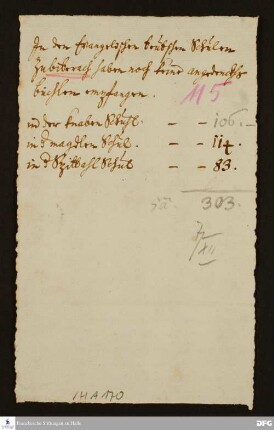 In den Evangelischen teutschen Schulen
Zu biberach haben noch keine angedenckh
büchlen empfangen.
115
in der knaben Schuhl. – – 106.
in d magdlen Schul. – – 114
in d Spittahl Schul – – 83.
303.
7/XII
I H A 170
Franckesche Stiftungen zu Halle
DFG